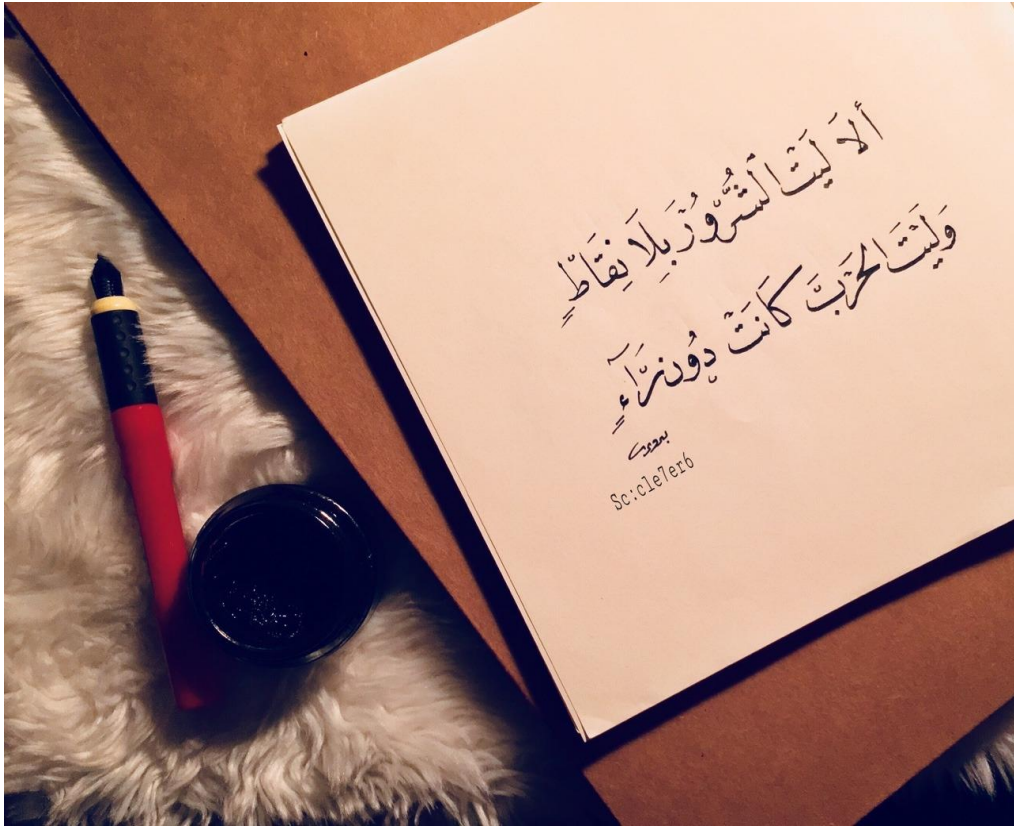 ألَا لَيْتَ الشُّرُوْرَ بِلَا نِقَاطٍ
وَلَيْتَ الحَرْبَ كَانَتْ دُونَ رَآءٍ
Sc:cle7er6